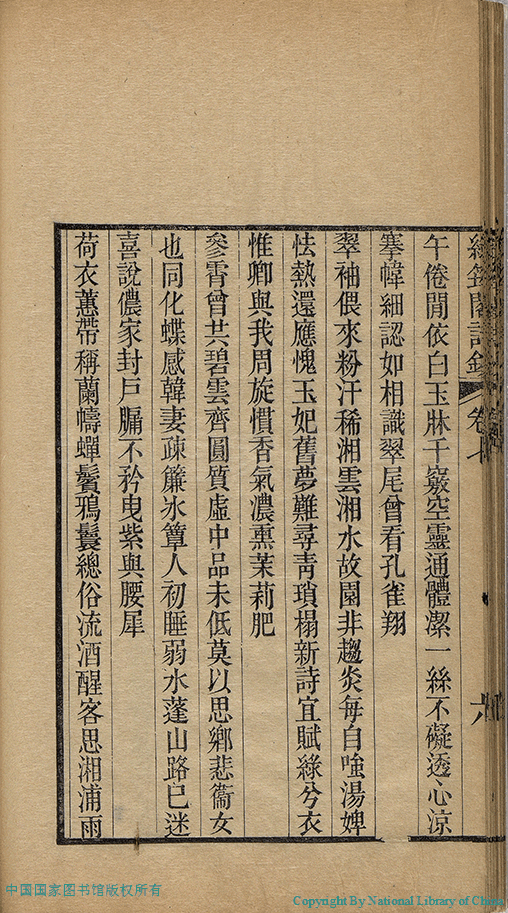 閣詩鈔 卷七 六
午倦閒依白玉牀千竅空靈通體潔一絲不礙透心涼
搴幃細認如相識翠尾曾看孔雀翔
翠袖偎來粉汗稀湘雲湘水故園非趨炎每自嗤湯婢
怯熱還應愧玉妃舊夢難尋青瑣榻新詩宜賦綠兮衣
惟卿與我周旋慣香氣濃熏茉莉肥
參霄曾共碧雲齊圓質虛中品未低莫以思鄉悲衞女
也同化蝶感韓妻疎簾冰簟人初睡弱水蓬山路已迷
喜說儂家封戶牖不矜曳紫與腰犀
荷衣蕙帶稱蘭幬蟬鬢鴉鬟總俗流酒醒客思湘浦雨
中国国家图书馆版权所有
Copyright By National Library of China